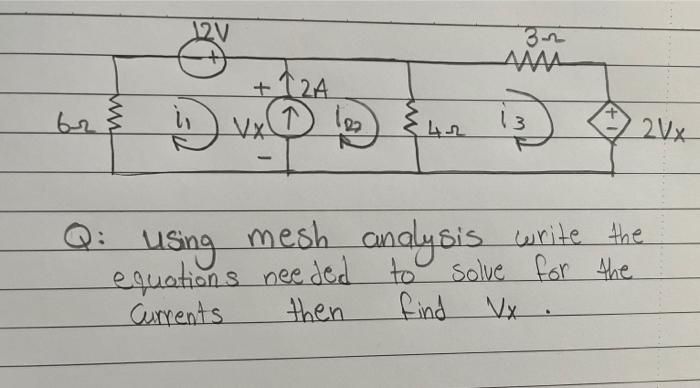 12V
3Ω
+ 2A
6Ω i1 Vx i2 4Ω i3 + - 2Vx
-
Q: using mesh analysis write the
equations needed to solve for the
currents then find Vx .